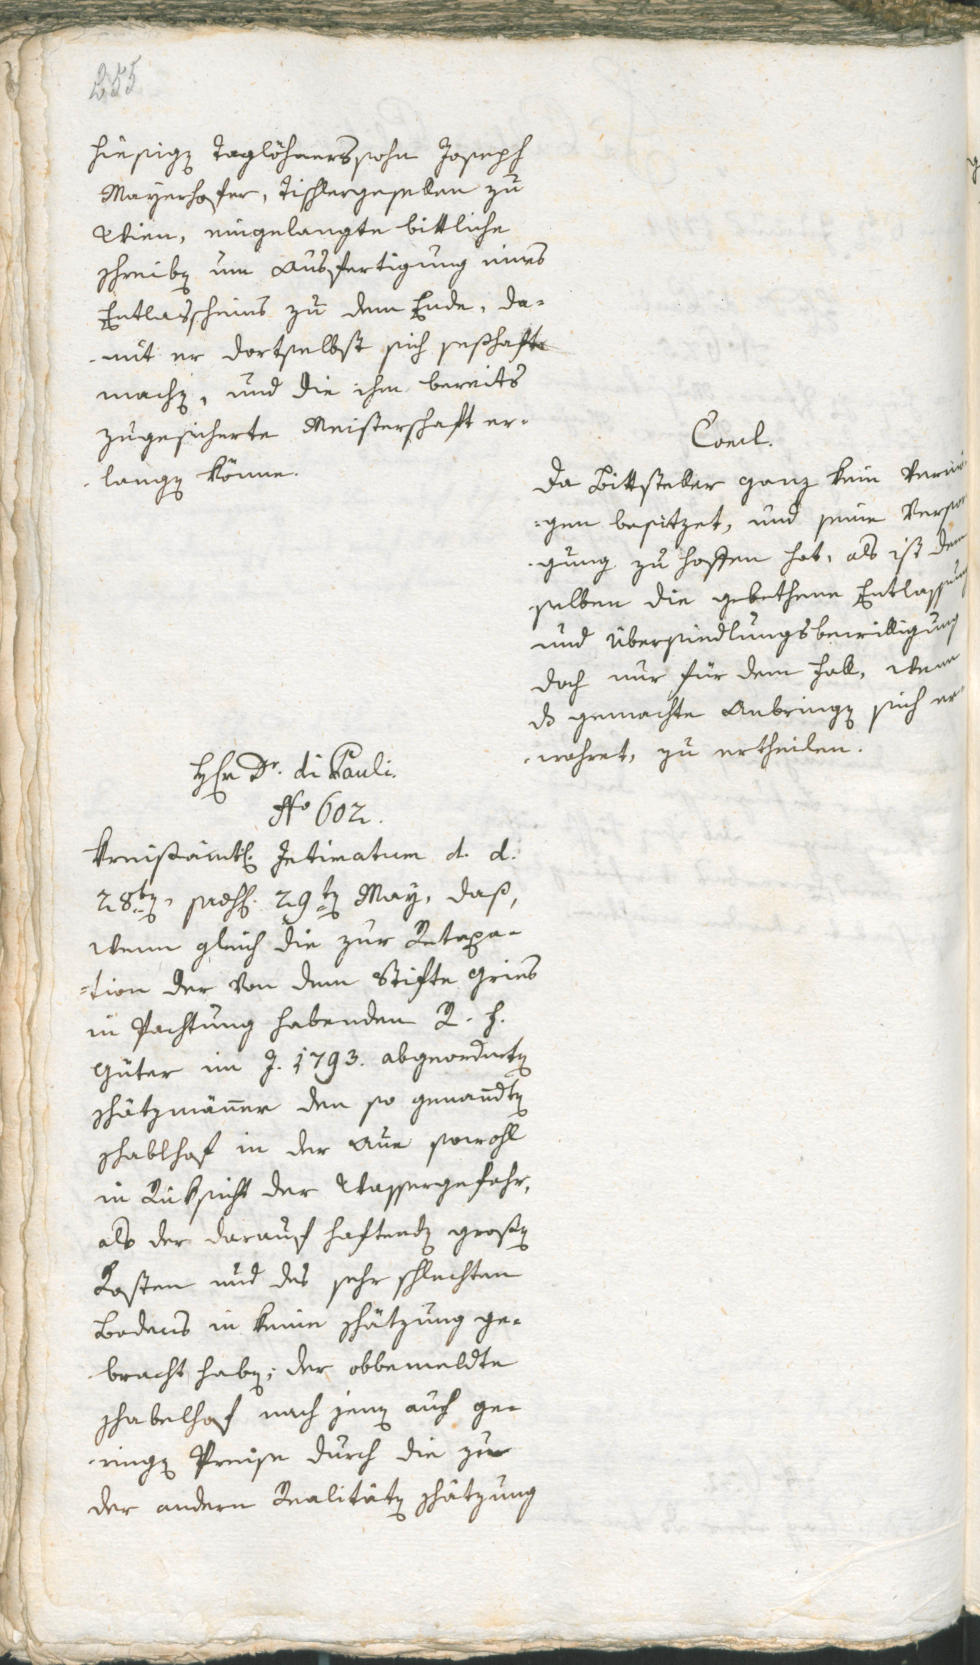 255
hiesigen Taglöhnerssohn Joseph
Mayrhofer, Tischlergesellen zu
Wien, eingelangte bittliche
Schreiben um Ausfertigung eines
Entlasscheins zu dem Ende, da-
-mit er dortselbst sich seßhaft
machen, und die ihm bereits
zugesicherte Meisterschaft er-
-langen könne.
Concl.
Da Bittsteller ganz kein Vermö-
-gen besitzet, und seine Versor-
-gung zu hoffen hat, als ist dem
selben die gebethene Entlassung
und Übersiedlungsbewilligung
doch nur für dem Fall, wenn
das gemachte Anbringen sich er-
-wahret, zu ertheilen.
Herr Dr. di Pauli.
No 602.
Kreisämtl. Intimatum d. d.
28ten, 29ten May, daß,
wenn gleich die zur Retaxa-
-tion der von dem Stifte Gries
in Pachtung habenden R. f.
Güter im J. 1793. abgeordneten
Schätzmänner den so genandten
Schablhof in der Aue sowohl
in Rücksicht der Wassergefahr,
als der darauf haftenden großen
Kosten und des sehr schlechten
Bodens in keine Schätzung ge-
-bracht haben; der obbemeldte
Schabelhof nach jenen auch ge-
-ringen Preise durch die zu
der andern Realitäten Schätzung